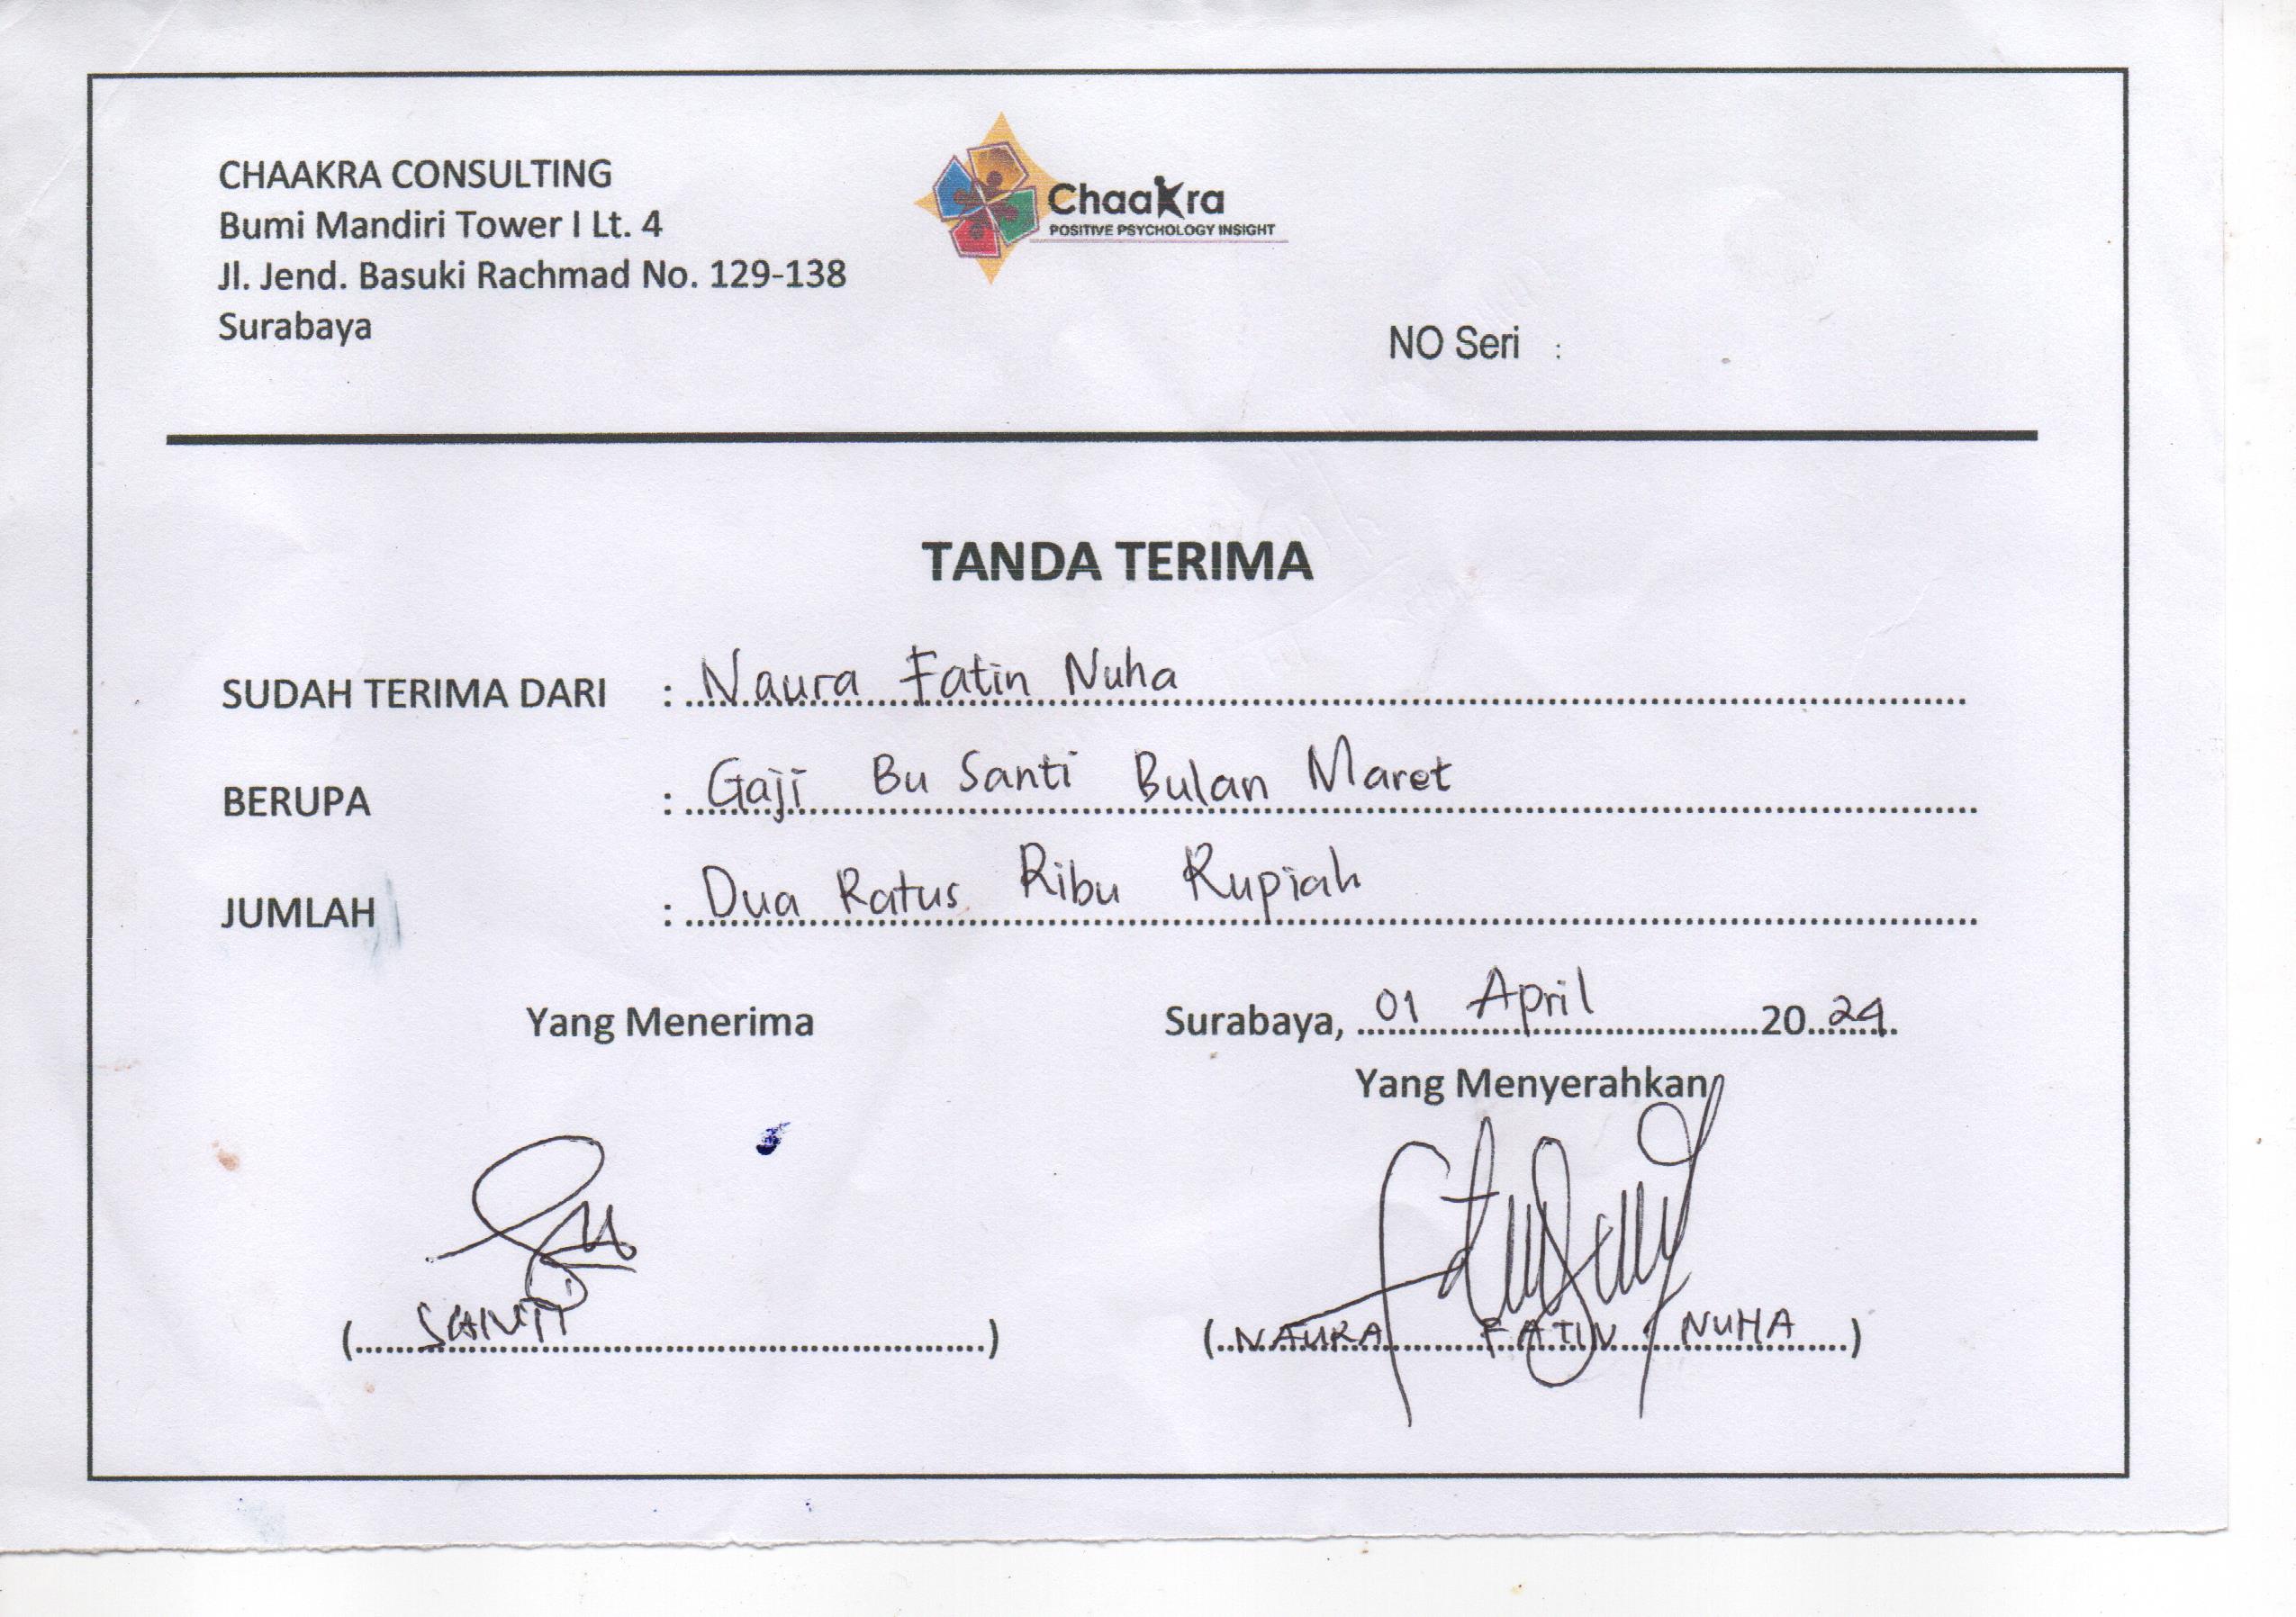 CHAAKRA CONSULTING
Bumi Mandiri Tower I Lt. 4
Jl. Jend. Basuki Rachmad No. 129-138
Surabaya
Chaakra
POSITIVE PSYCHOLOGY INSIGHT
NO Seri :
TANDA TERIMA
SUDAH TERIMA DARI : Naura Fatin Nuha
BERUPA : Gaji Bu Santi Bulan Maret
JUMLAH : Dua Ratus Ribu Rupiah
Yang Menerima
Surabaya, 01 April 2024
Yang Menyerahkan
(SANTI)
(NAURA FATIN NUHA)